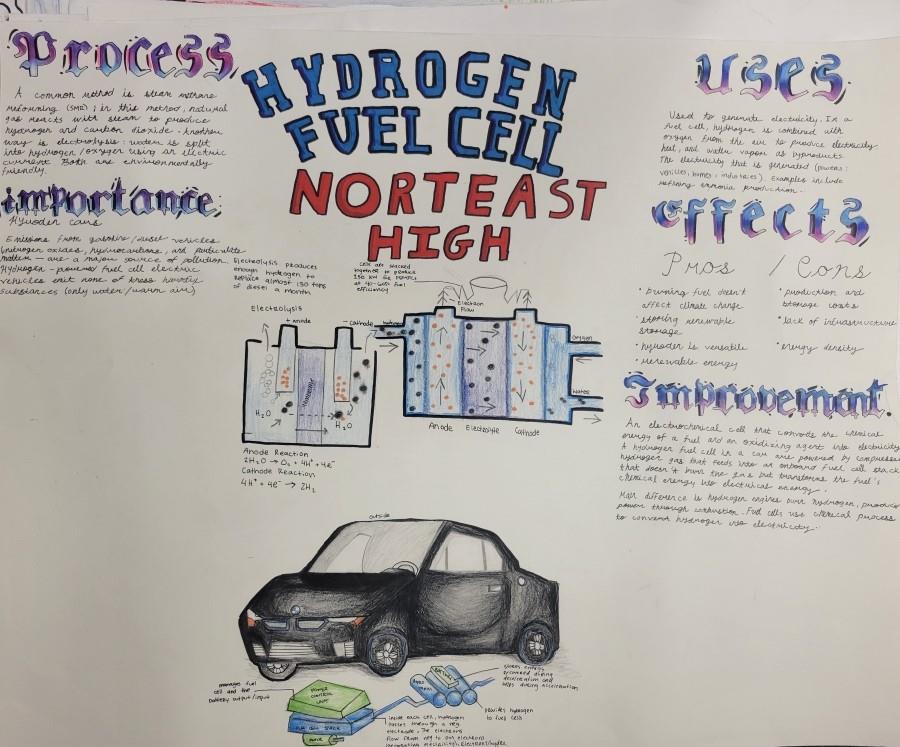 Process
A common method is steam methane
reforming (SME); in this method, natural
gas reacts with steam to produce
hydrogen and carbon dioxide. Another
way is electrolysis: water is split
into hydrogen/oxygen using an electric
current. Both are environmentally
friendly.
importance
Hyroden cars
Emissions from gasoline/diesel vehicles
(nitrogen oxides, hydrocarbons, and particulate
matter — are a major source of pollution.
Hydrogen-powered fuel cell electric
vehicles emit none of these harmful
substances (only water/warm air)
HYDROGEN
FUEL CELL
NORTEAST
HIGH
Electrolysis produces
enough hydrogen to
replace almost 130 tons
of diesel a month
cells are stacked
together to produce
at 40-60% fuel
efficiency
Electrolysis
+ anode
- cathode
H₂O
H₂O
Electron
Flow
Oxygen
Water
Anode
Electrolyte
Cathode
Anode Reaction
2H₂O → O₂ + 4H⁺ + 4e⁻
Cathode Reaction
4H⁺ + 4e⁻ → 2H₂
outside
manages fuel
cell and the
battery output/input
power
control
unit
stores energy
deceleration and
helps during acceleration
provides hydrogen
to fuel cells
inside each cell, hydrogen
electrode. The electrons
Uses
Used to generate electricity. In a
fuel cell, hydrogen is combined with
oxygen from the air to produce electricity
heat, and water vapor as byproducts.
The electricity that is generated (powers:
vehicles, homes, industries). Examples include
refining ammonia production.
Effects
Pros / Cons
• burning fuel doesn't
affect climate change
• storing renewable
storage
• hyroden is versatile
• renewable energy
• production and
storage costs
• lack of infrastructure
• energy density
Improvement
An electrochemical cell that converts the chemical
energy of a fuel and an oxidizing agent into electricity
A hydrogen fuel cell in a car are powered by compressed
hydrogen gas that feeds into an onboard fuel cell stack
that doesn't burn the gas but transforms the fuel's
chemical energy into electrical energy.
Main difference is hydrogen engines burn hydrogen, produce
power through combustion. Fuel cells use chemical process
to convert hydrogen into electricity.